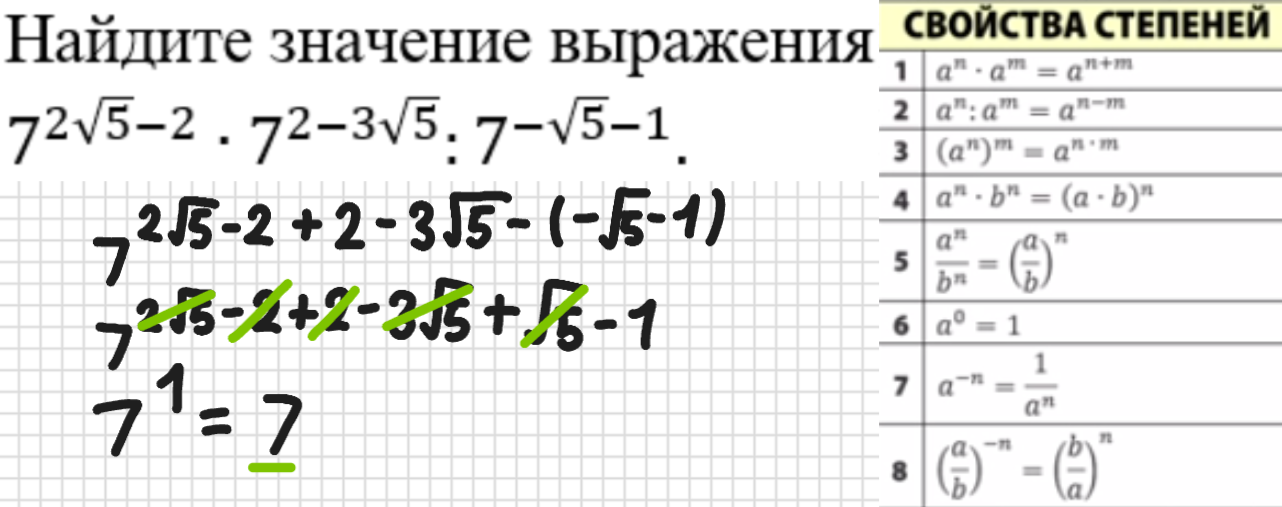 Найдите значение выражения
7^{2√5−2} · 7^{2−3√5} : 7^{−√5−1}.
7^{2√5-2+2-3√5-(-√5-1)}
7^{2√5-2+2-3√5+√5-1}
7^1 = 7
СВОЙСТВА СТЕПЕНЕЙ
1 a^n · a^m = a^{n+m}
2 a^n : a^m = a^{n−m}
3 (a^n)^m = a^{n·m}
4 a^n · b^n = (a · b)^n
5 a^n/b^n = (a/b)^n
6 a^0 = 1
7 a^{−n} = 1/a^n
8 (a/b)^{−n} = (b/a)^n